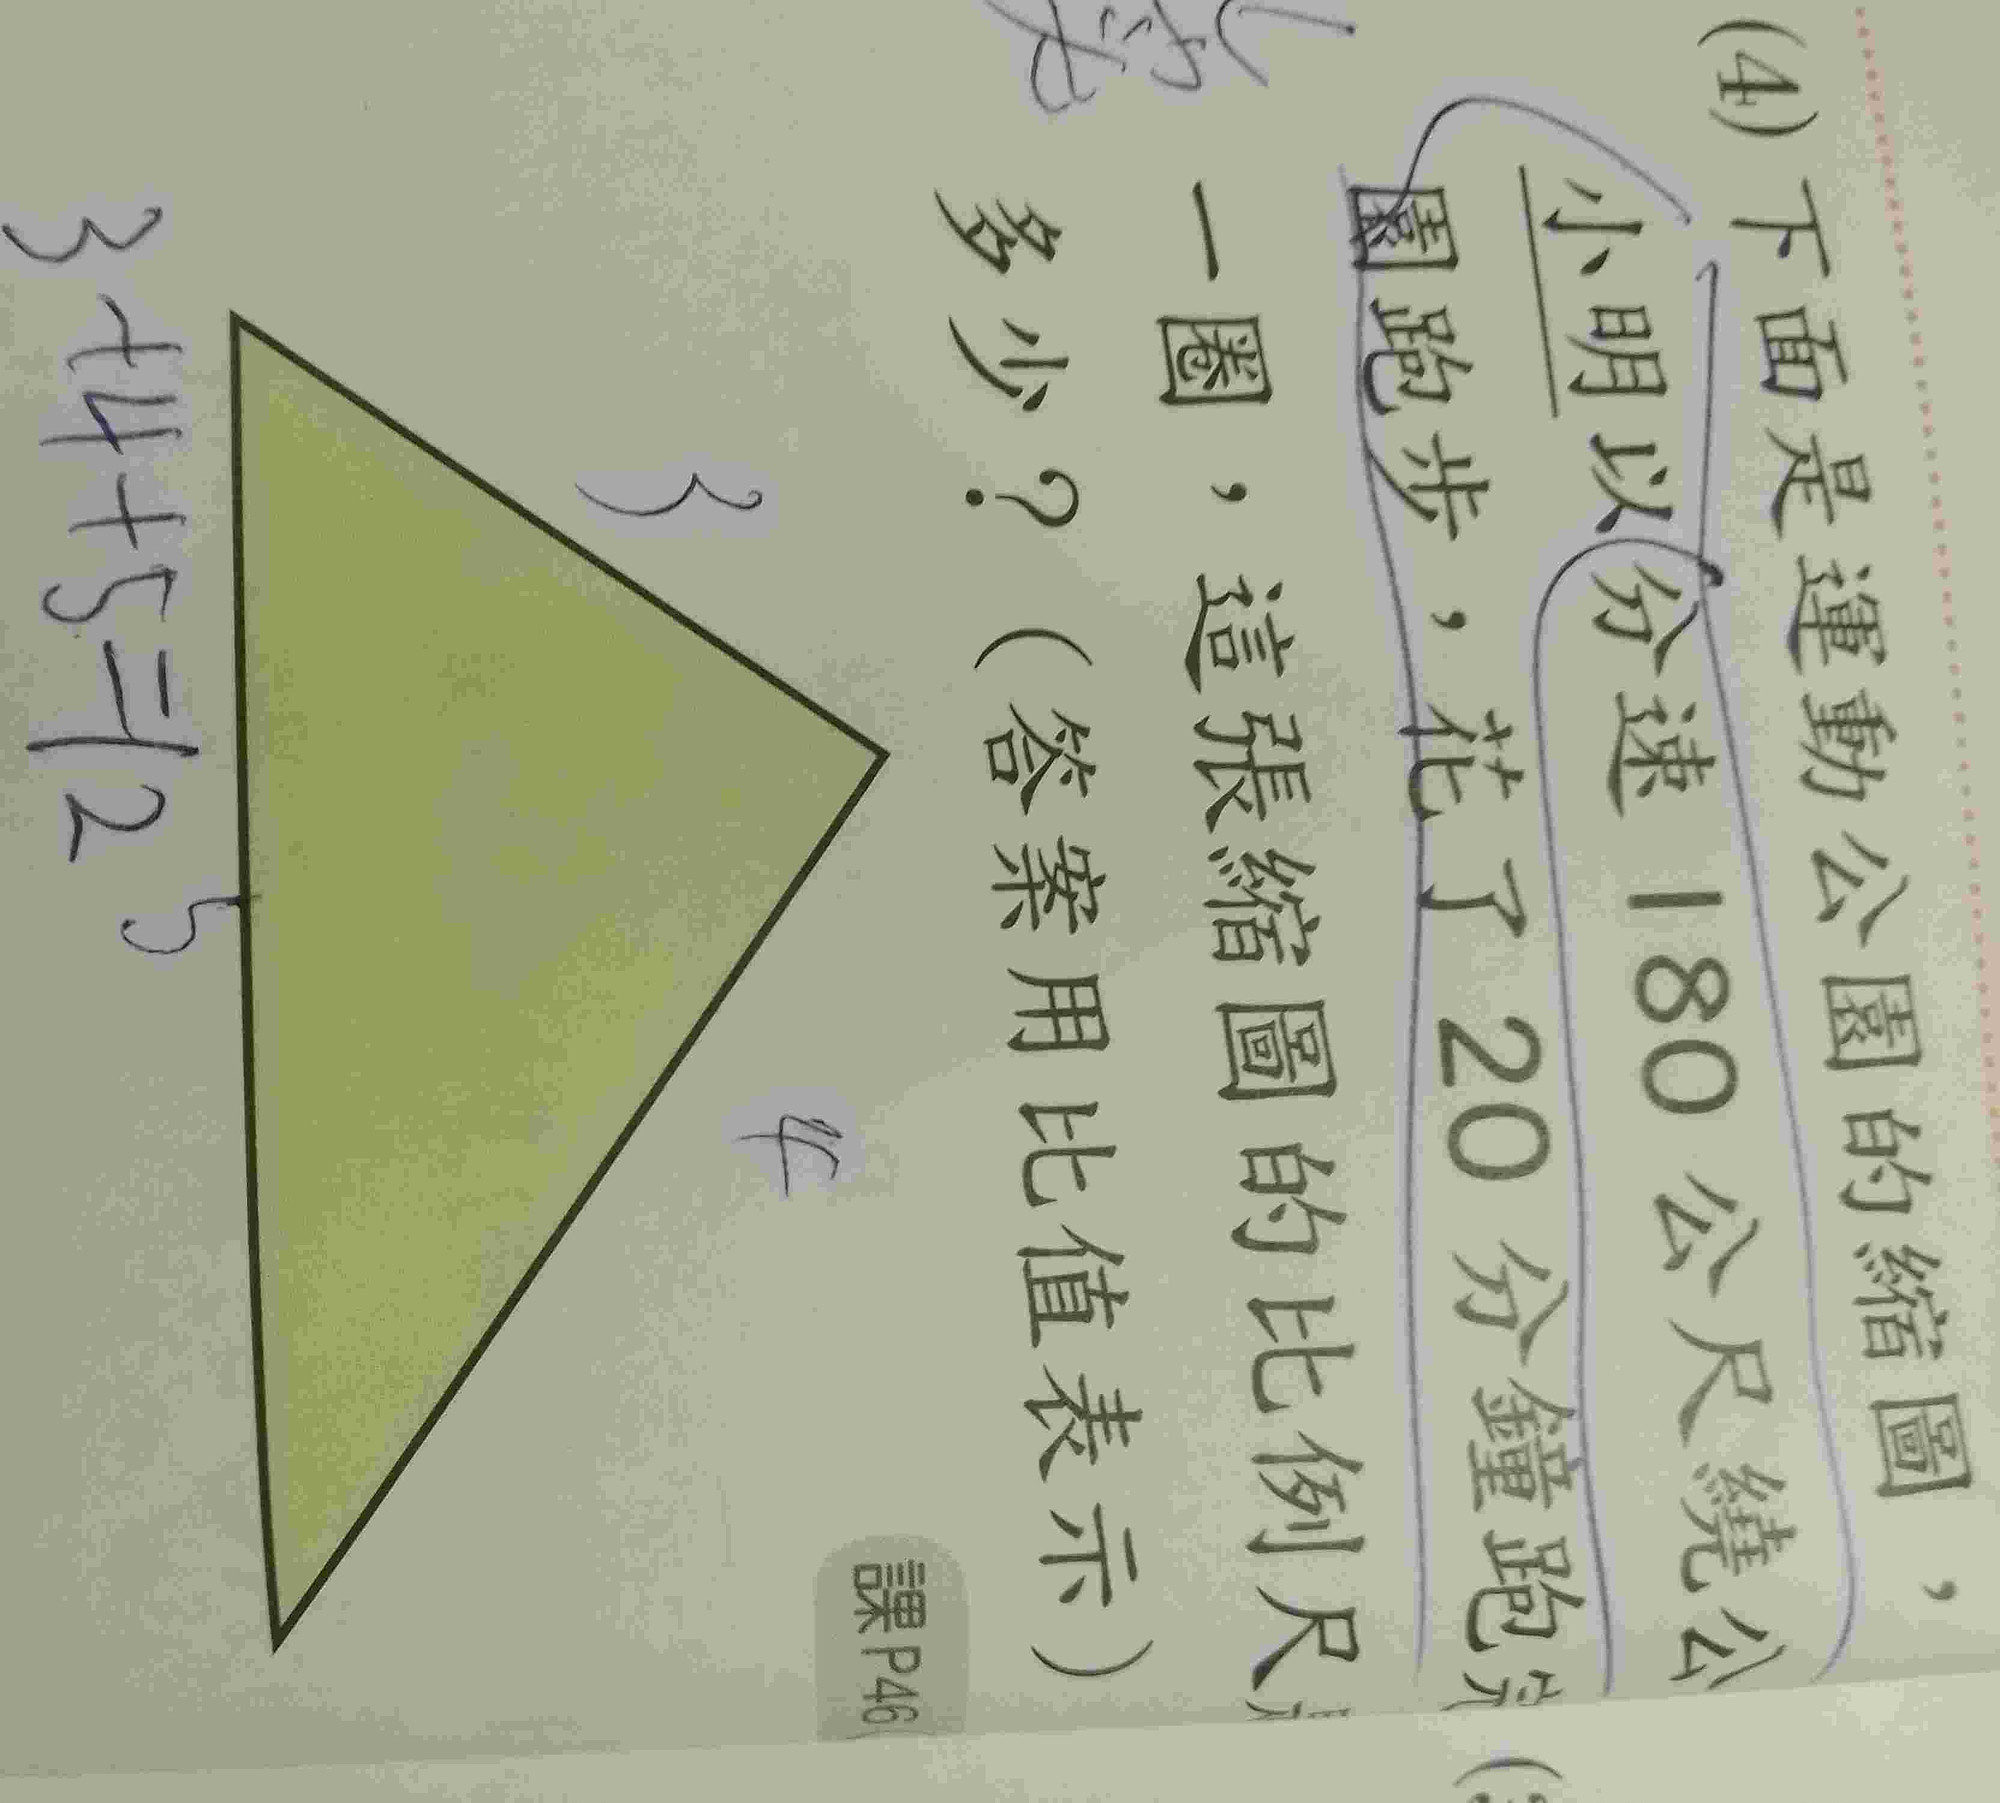 (4)下面是運動公園的縮圖，
小明以分速180公尺繞公
園跑步，花了20分鐘跑完
一圈，這張縮圖的比例尺是
多少？（答案用比值表示）
課P46
3
4
5
3+4+5=12